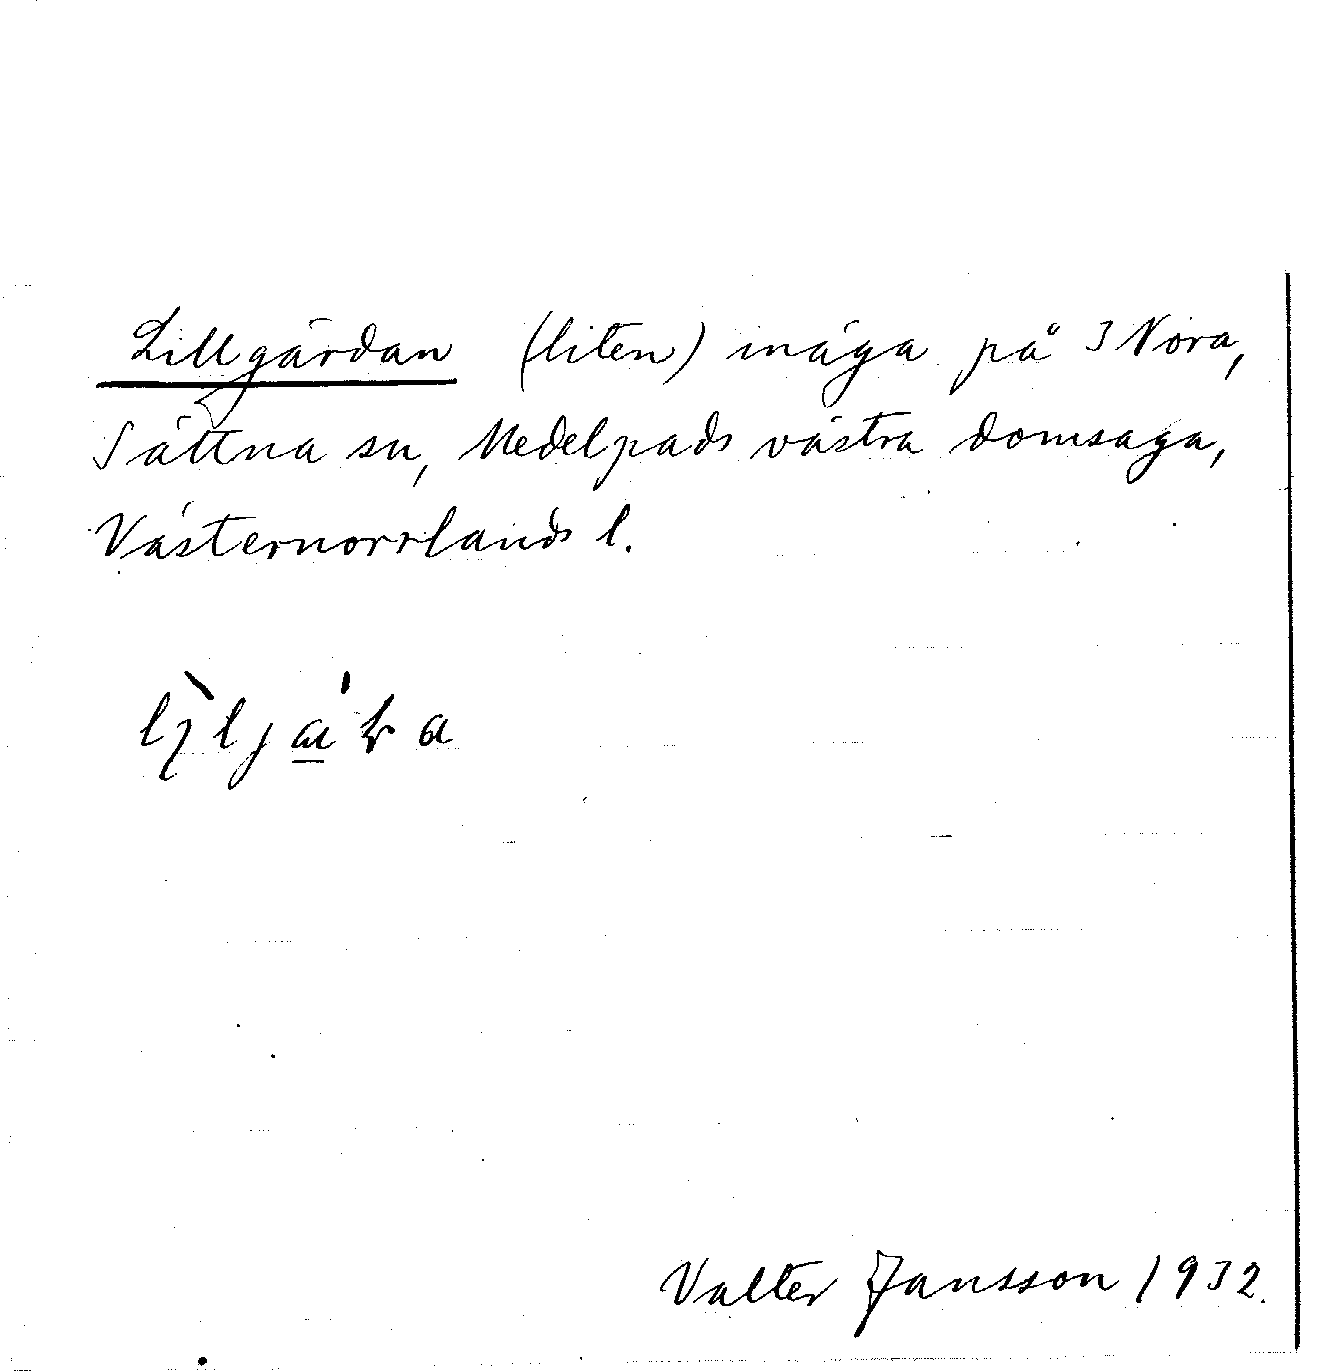 Lillgärdan (liten) inäga på 3 Nora,
Sättna sn, Medelpads västra domsaga,
Västernorrlands l.
Valter Jansson 1932.